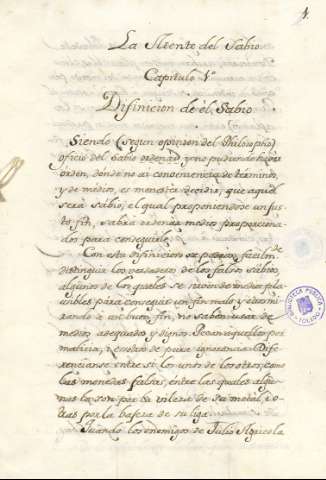 1.
La Mente del Sabio
Capitulo 1º
Difinicion de el Sabio
Siendo (segun opinion del Philosopho)
oficio del Sabio ordenar, y no pudiendo haver
orden, donde no ai conveniencia de terminos,
y de medios, es menester decidir, que aquel
será sabio, el qual proponiendose un jus
to fin, sabrá ordenar medios proporciona
dos para conseguirle.
Con esta difinicion se pueden facilm.te
distinguir los verdaderos de los falsos sabios,
algunos de los quales se sirven de medios plau
sibles para conseguir un fin malo; y otros
a un buen fin, no saben usar de
medios adequados y dignos. Pecan aquellos por
malicia, i estotros de pura ignorancia. Dife
rencianse entre sí los unos de los otros, como
las monedas falsas, entre las quales algu
nas lo son por la vileza de su metal, i o
tras por la bajeza de su liga.
Quando los enemigos de Julio Agricola
BIBLIOTECA PUBLICA
TOLEDO